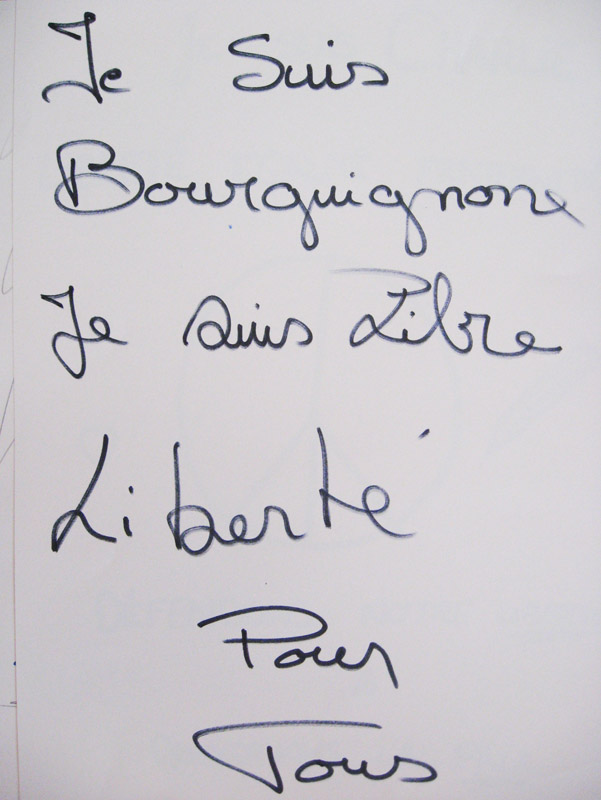 Je Suis
Bourguignone
Je suis Libre
Liberté
Pour
Tous